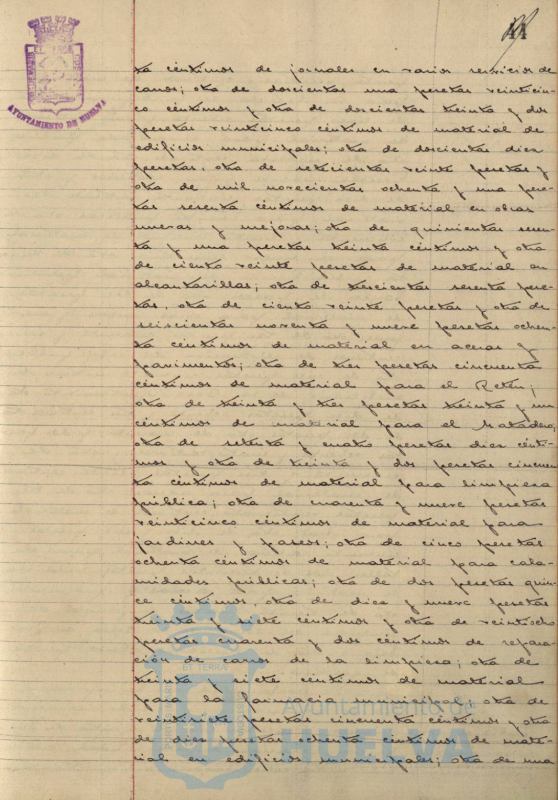 AYUNTAMIENTO DE HUELVA
ta céntimos de jornales en varios servicios de
carros; otra de doscientas una pesetas veinticin-
co céntimos y otra de doscientas treinta y dos
pesetas veinticinco céntimos de material de
edificios municipales; otra de doscientas diez
pesetas, otra de setecientas veinte pesetas y
otra de mil novecientas ochenta y una pese-
tas sesenta céntimos de material en obras
nuevas y mejoras; otra de quinientas sesen-
ta y una pesetas treinta céntimos y otra
de ciento veinte pesetas de material en
alcantarillas; otra de trescientas sesenta pese-
tas, otra de ciento veinte pesetas y otra de
seiscientas noventa y nueve pesetas ochen-
ta céntimos de material en aceras y
pavimentos; otra de tres pesetas cincuenta
céntimos de material para el Retén;
otra de treinta y tres pesetas treinta y un
céntimos de material para el Matadero;
otra de setenta y cuatro pesetas diez cénti-
mos y otra de treinta y dos pesetas cincuen
ta céntimos de material para limpieza
pública; otra de cuarenta y nueve pesetas
veinticinco céntimos de material para
jardines y paseos; otra de cinco pesetas
ochenta céntimos de material para cala-
midades públicas; otra de dos pesetas quin-
ce céntimos, otra de diez y nueve pesetas
treinta y siete céntimos y otra de veintiocho
pesetas cuarenta y dos céntimos de repara-
ción de carros de la limpieza; otra de
treinta y siete céntimos de material
para la farmacia municipal; otra de
veintisiete pesetas cincuenta céntimos y otra
de diez pesetas ochenta céntimos de mate-
rial en edificios municipales; otra de una
Ayuntamiento de
HUELVA